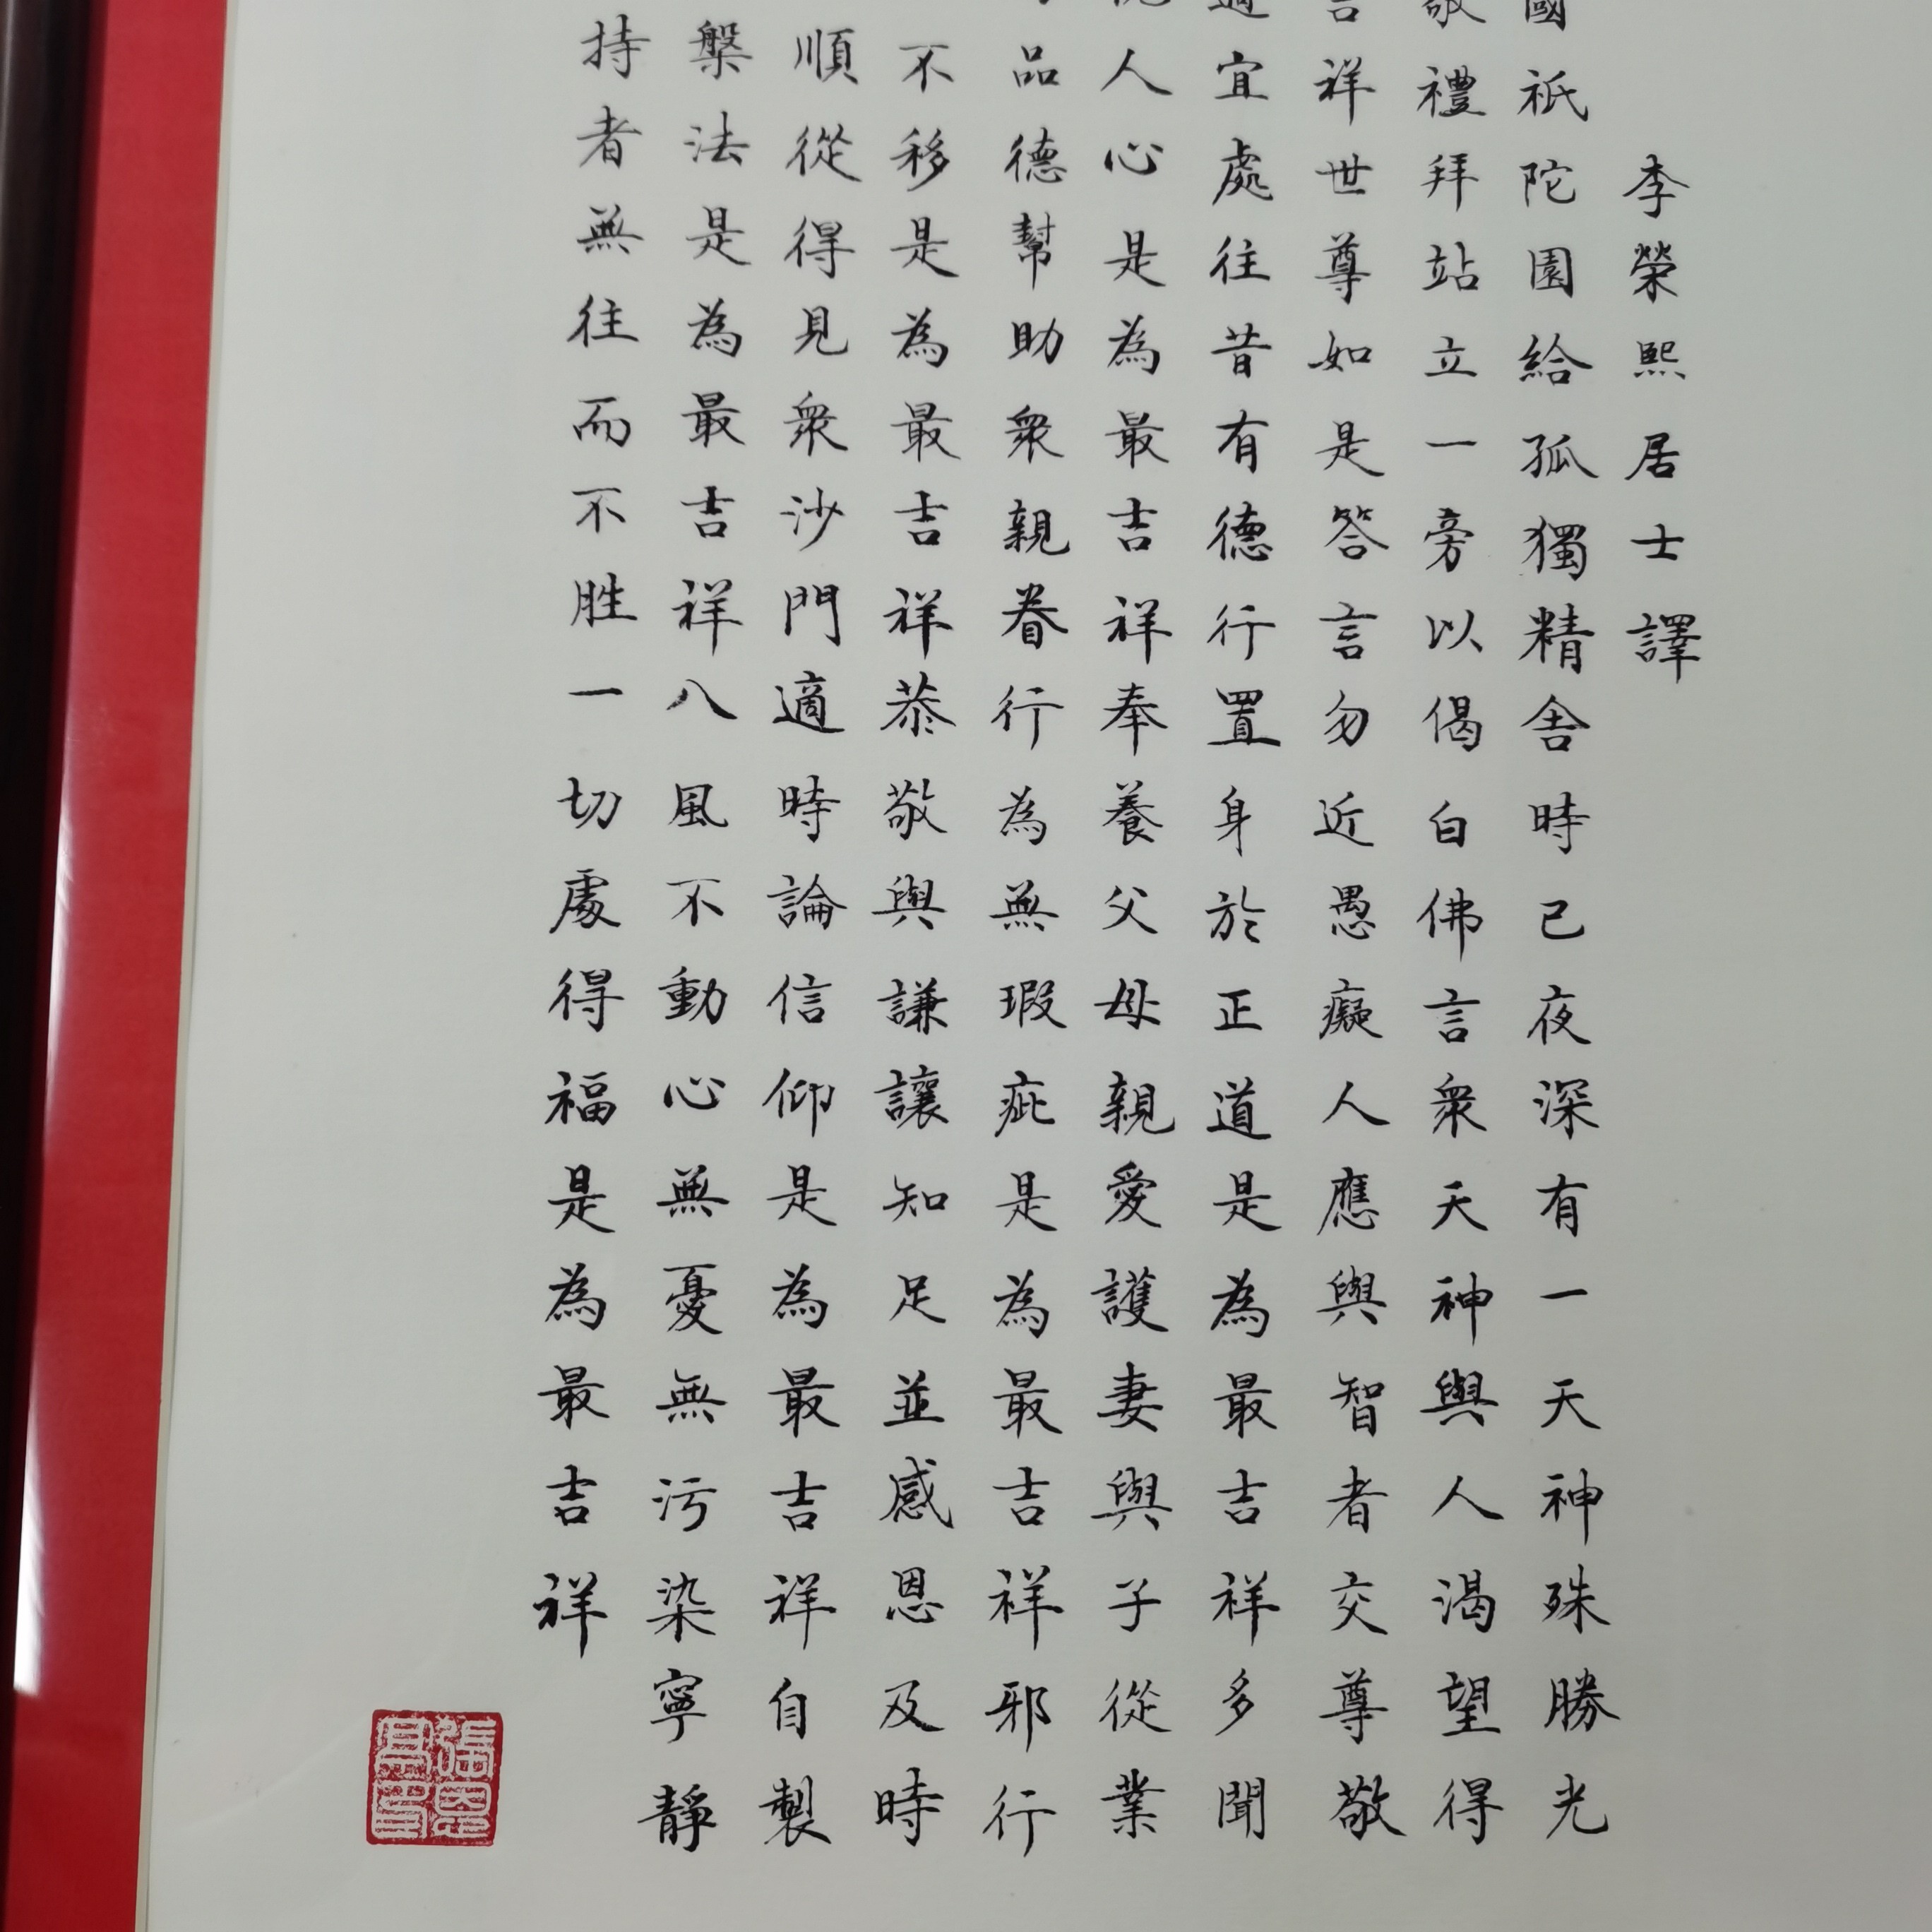 李榮熙居士譯
國祇陀園給孤獨精舍時已夜深有一天神殊勝光
敬禮拜站立一旁以偈白佛言衆天神與人渴望得
吉祥世尊如是答言勿近愚癡人應與智者交尊敬
適宜處往昔有德行置身於正道是為最吉祥多聞
人心是為最吉祥奉養父母親愛護妻與子從業
品德幫助衆親眷行為無瑕疵是為最吉祥邪行
不移是為最吉祥恭敬與謙讓知足並感恩及時
順從得見衆沙門適時論信仰是為最吉祥自製
槃法是為最吉祥八風不動心無憂無污染寧靜
持者無往而不胜一切處得福是為最吉祥